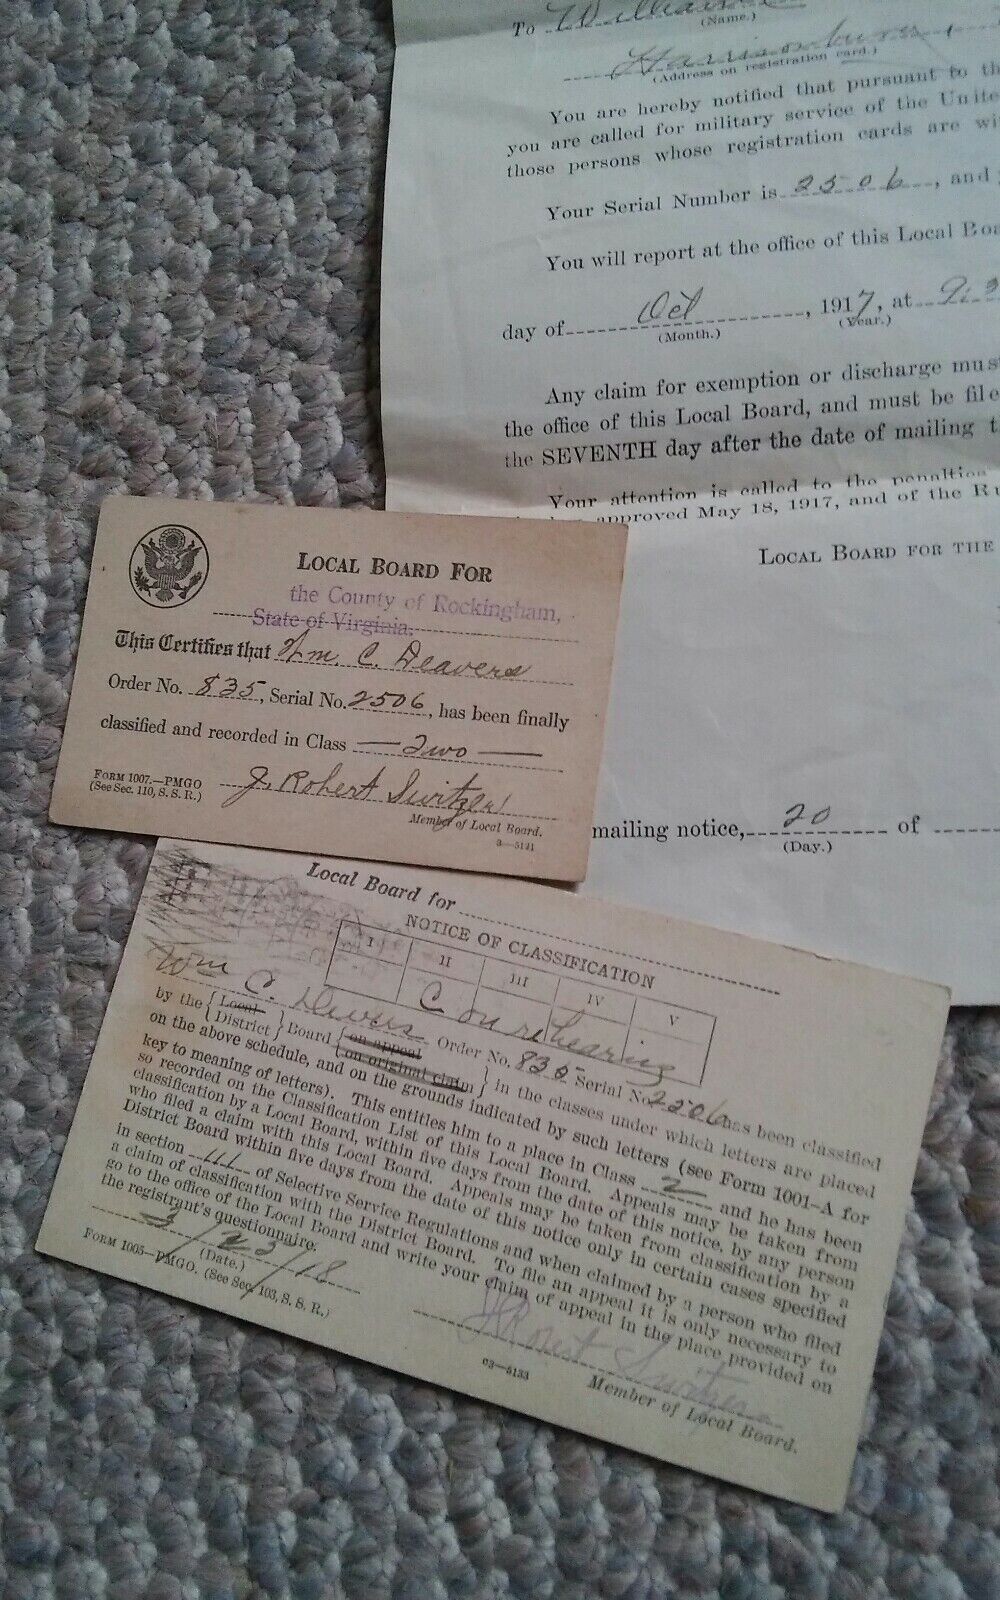 To William C
(Name.)
Harrisonburg,
(Address on registration card.)
You are hereby notified that pursuant to th
you are called for military service of the Unite
those persons whose registration cards are wi
Your Serial Number is 2506, and y
You will report at the office of this Local Boa
day of Oct, 1917, at 9.3
(Month.) (Year.)
Any claim for exemption or discharge mus
the office of this Local Board, and must be file
the SEVENTH day after the date of mailing t
Your attention is called to the penalties
approved May 18, 1917, and of the Ru
LOCAL BOARD FOR THE
mailing notice, 20 of
(Day.)
LOCAL BOARD FOR
the County of Rockingham,
State of Virginia.
This Certifies that Wm. C. Deavers
Order No. 835, Serial No. 2506, has been finally
classified and recorded in Class — Two —
FORM 1007.—PMGO
(See Sec. 110, S. S. R.)
J. Robert Switzer
Member of Local Board.
3—5121
Local Board for
NOTICE OF CLASSIFICATION
I II III IV V
C on rehearing
Wm C. Devers Order No. 835 Serial No. 2506 has been classified
by the {Local District} Board {on appeal on original claim} in the classes under which letters are placed
on the above schedule, and on the grounds indicated by such letters (see Form 1001-A for
key to meaning of letters). This entitles him to a place in Class 2 and he has been
so recorded on the Classification List of this Local Board. Appeals may be taken from
classification by a Local Board, within five days from the date of this notice, by any person
who filed a claim with this Local Board. Appeals may be taken from classification by a
District Board within five days from the date of this notice only in certain cases specified
in section 111 of Selective Service Regulations and when claimed by a person who filed
a claim of classification with the District Board. To file an appeal it is only necessary to
go to the office of the Local Board and write your claim of appeal in the place provided on
the registrant's questionnaire.
3/25/18
(Date.)
FORM 1005—PMGO. (See Sec. 103, S. S. R.)
J Robert Switzer
c3—5133
Member of Local Board.